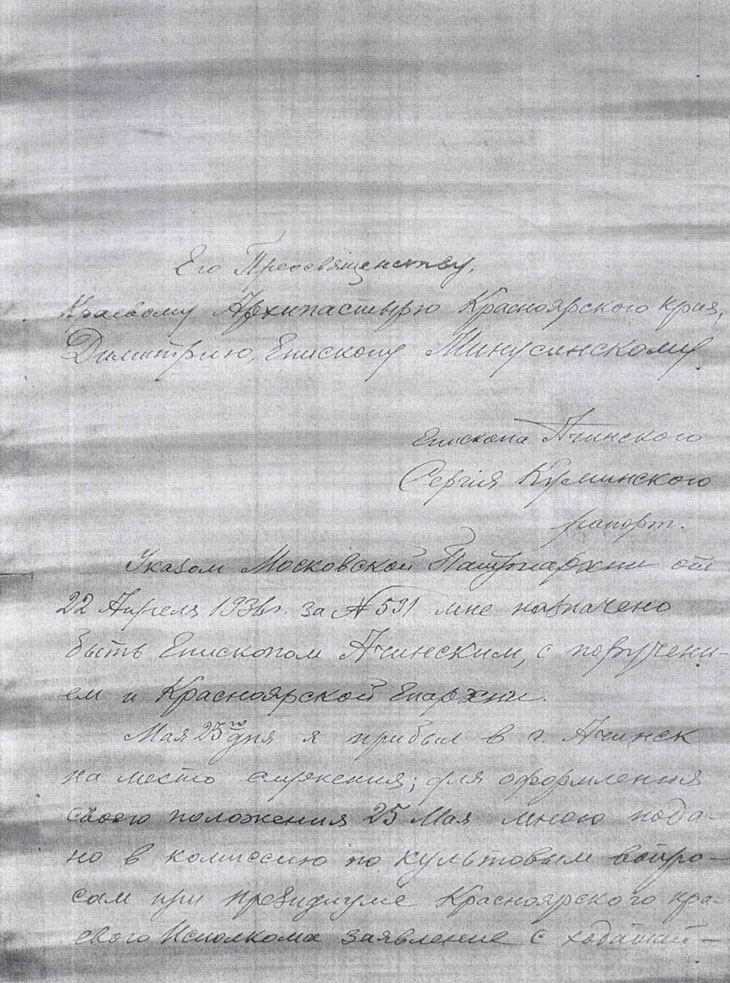 Его Преосвященству,
Краевому Архипастырю Красноярского края,
Димитрию, Епископу Минусинскому
Епископа Ачинского
Сергія Куминского
рапорт.
Указом Московской Патриархии от
22 Апреля 1936 г. за № 531 мне назначено
быть Епископом Ачинским, с поручени-
ем и Красноярской Епархии.
Мая 25го дня я прибыл в г. Ачинск
на место служения; для оформления
своего положения 25 Мая мною пода-
но в комиссию по культовым вопро-
сам при президиуме Красноярского кра-
евого Исполкома заявление с ходатай-